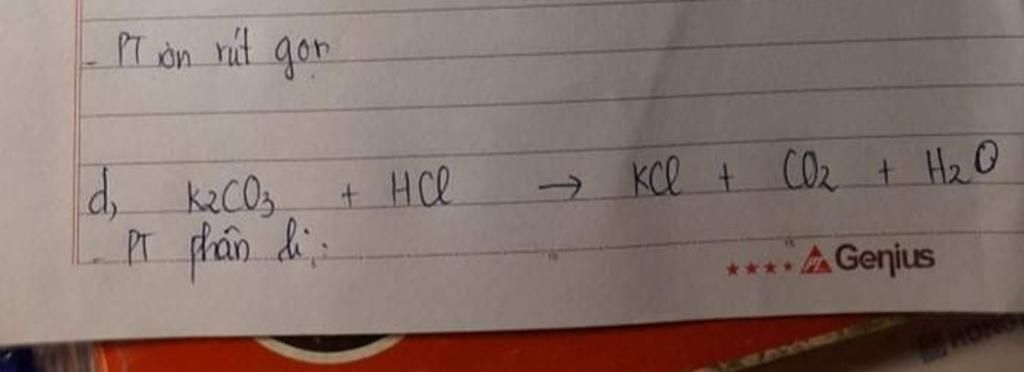 - PT ion rút gọn
d, K2CO3 + HCl → KCl + CO2 + H2O
- PT phân li:
★★★★ PT Genius
HỒNG